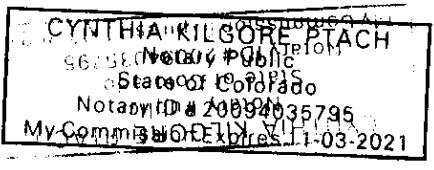 CYNTHIA KILGORE PTACH
Notary Public
State of Colorado
Notary ID # 20094035795
My Commission Expires 11-03-2021